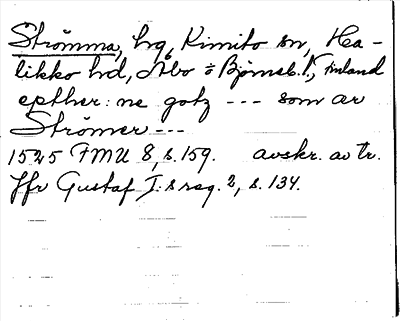 Strömma, hg, Kimito sn, Ha-
likko hd, Åbo o Björneb. l., Finland
epther: ne gotz --- som är
Strömer ---
1525 FMU 8, s. 159. avskr. av tr.
Jfr Gustaf I:s reg. 2, s. 134.